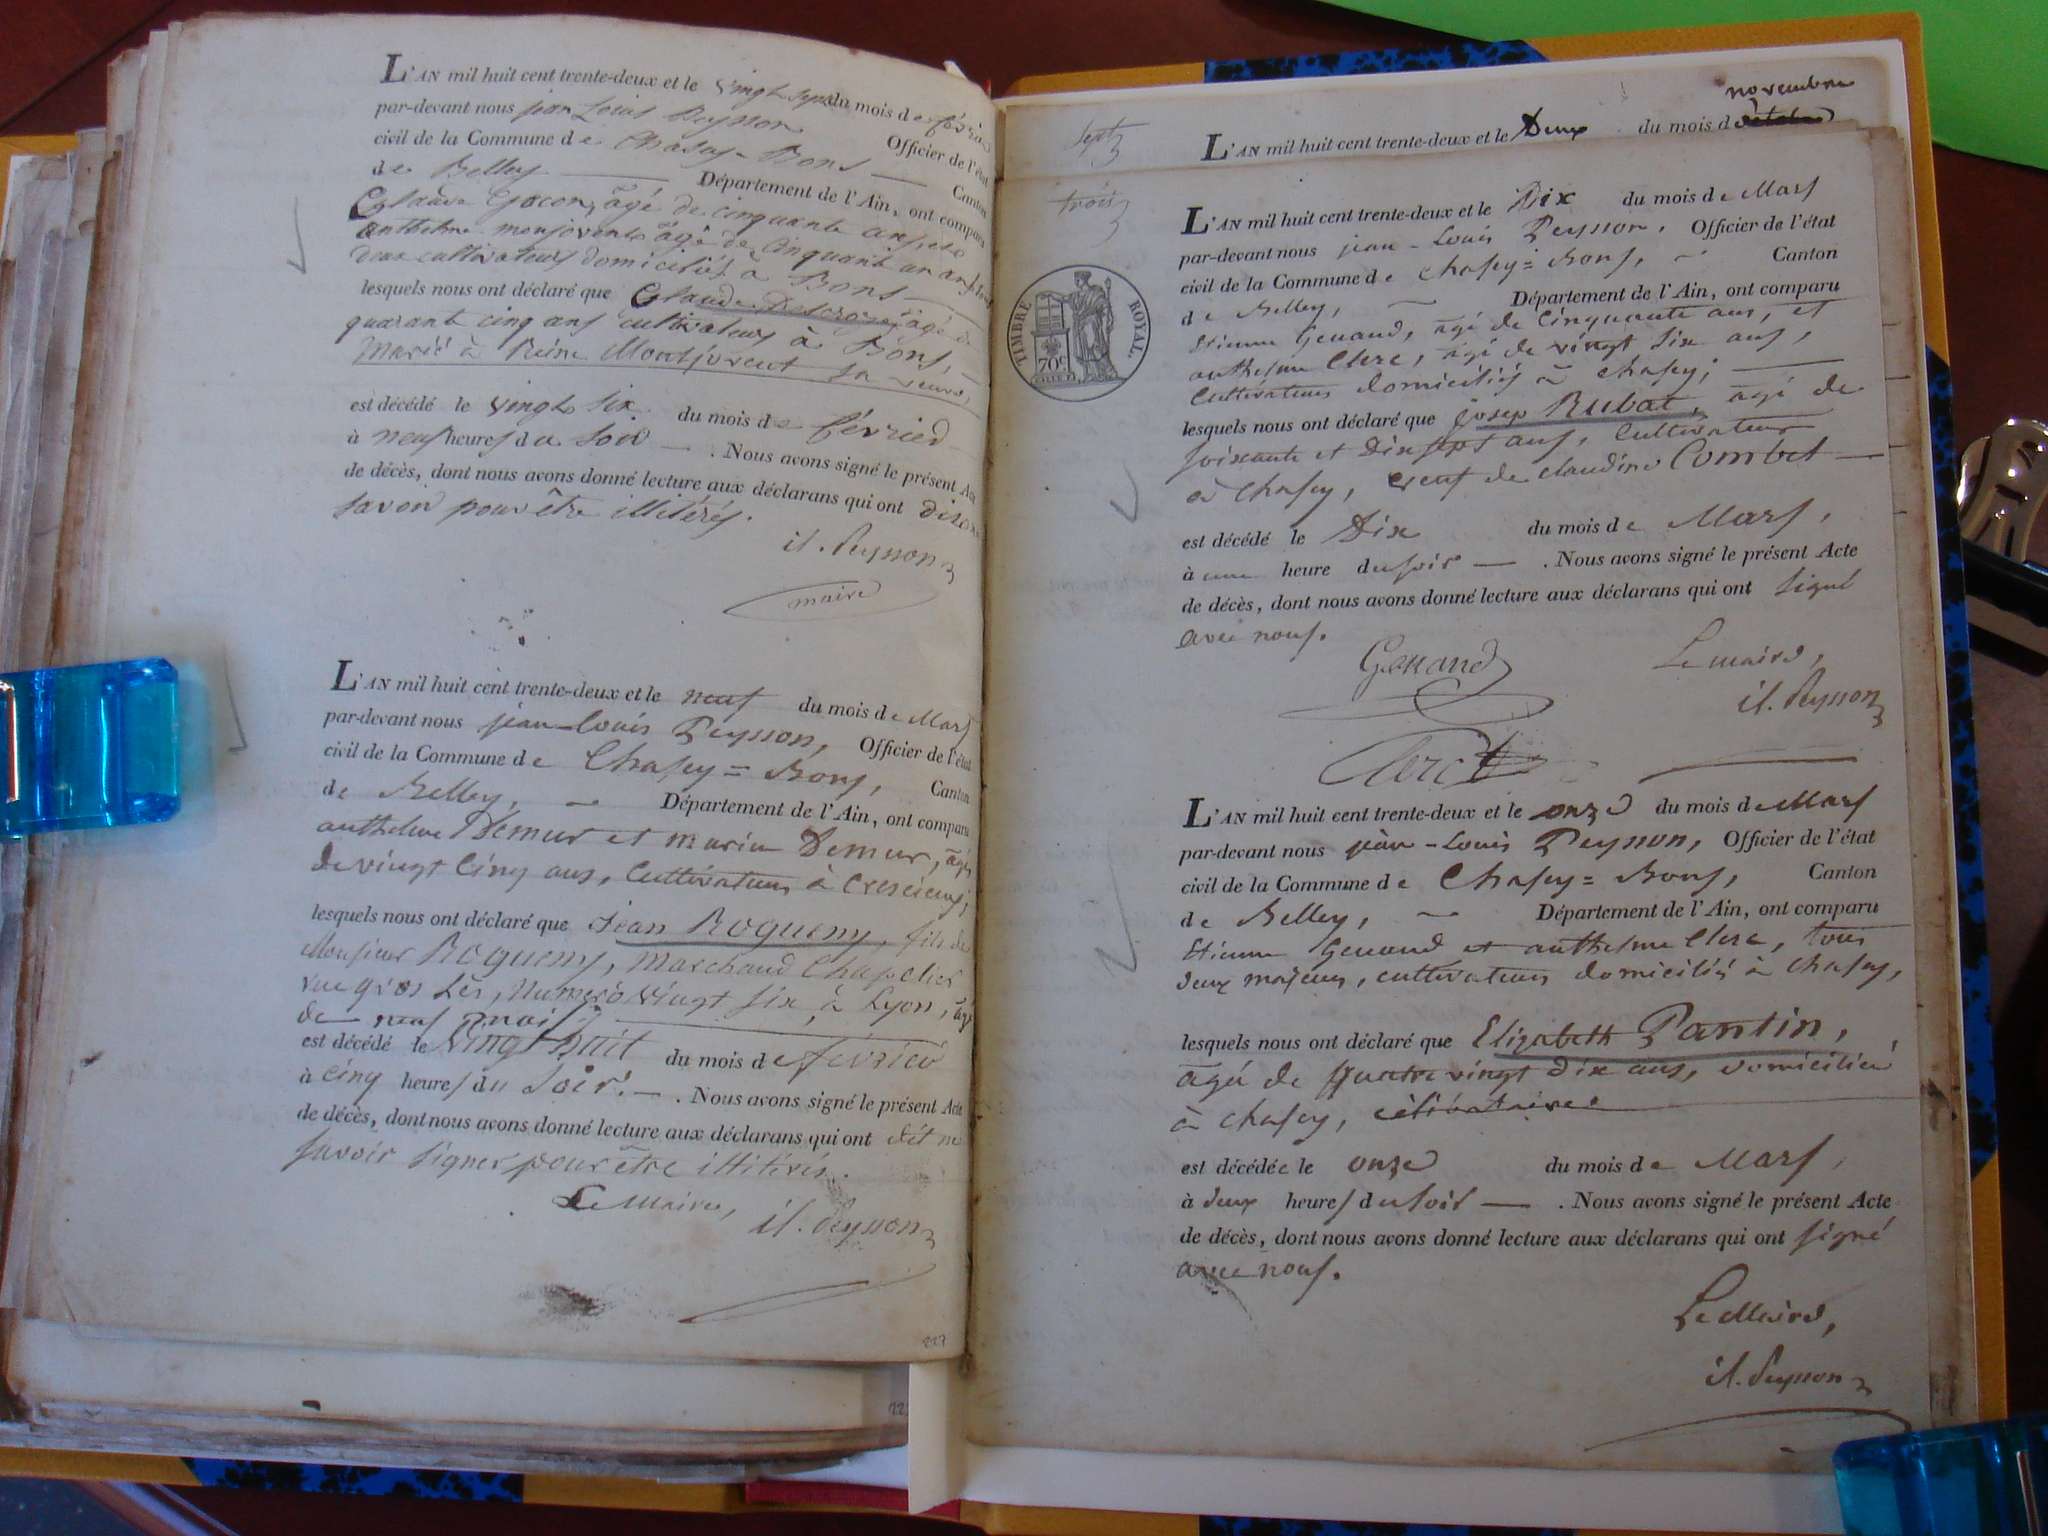 L'AN mil huit cent trente-deux et le vingt sept du mois de février
par-devant nous jean Louis Peysson Officier de l'état
civil de la Commune de Chasey-Bons Canton
de Belley Département de l'Ain, ont comparu
Claude âgé de cinquante ans, et
anthelme monjovent âgé de cinquante un ans, tous
deux cultivateurs domiciliés à Bons
lesquels nous ont déclaré que Claude âgé de
quarante cinq ans cultivateur à Bons,
Marié à Reine Montjovent sa veuve,
est décédé le vingt six du mois de février
à neuf heures du soir. Nous avons signé le présent Acte
de décès, dont nous avons donné lecture aux déclarans qui ont
savoir pour être illitérés.
j.l. Peysson
maire
L'AN mil huit cent trente-deux et le neuf du mois de Mars
par-devant nous jean-Louis Peysson, Officier de l'état
civil de la Commune de Chasey=Bons, Canton
de Belley, Département de l'Ain, ont comparu
anthelme Demur et marin Demur, âgés
de vingt cinq ans, cultivateurs à
lesquels nous ont déclaré que Jean Rogueny, fils de
Monsieur Rogueny, Marchand Chapelier
rue gros Numéro vingt six, à Lyon, âgé
de neuf mois
est décédé le vingt huit du mois de février
à cinq heures du soir. Nous avons signé le présent Acte
de décès, dont nous avons donné lecture aux déclarans qui ont dit ne
savoir signer pour être illitérés.
Le Maire, j.l. Peysson
227
novembre
sept
L'AN mil huit cent trente-deux et le Deux du mois d
trois
TIMBRE ROYAL
70c
L'AN mil huit cent trente-deux et le Dix du mois de Mars
par-devant nous jean-Louis Peysson, Officier de l'état
civil de la Commune de Chasey=Bons, Canton
de Belley, Département de l'Ain, ont comparu
Etienne Genand, âgé de Cinquante ans, et
anthelme Clerc, âgé de vingt six ans,
Cultivateurs domiciliés à Chasey;
lesquels nous ont déclaré que josep Rubat, âgé de
soixante et Dix sept ans, Cultivateur
à Chasey, veuf de claudine Combet
est décédé le Dix du mois de Mars,
à une heure du soir. Nous avons signé le présent Acte
de décès, dont nous avons donné lecture aux déclarans qui ont signé
avec nous.
Genand Le maire,
j.l. Peysson
Clerc
L'AN mil huit cent trente-deux et le onze du mois de Mars
par-devant nous jean-Louis Peysson, Officier de l'état
civil de la Commune de Chasey=Bons, Canton
de Belley, Département de l'Ain, ont comparu
Etienne Genand et anthelme Clerc, tous
deux majeurs, cultivateurs domiciliés à Chasey,
lesquels nous ont déclaré que Elizabeth Pantin,
âgée de quatre vingt dix ans, domiciliée
à Chasey, célibataire
est décédée le onze du mois de Mars,
à deux heures du soir. Nous avons signé le présent Acte
de décès, dont nous avons donné lecture aux déclarans qui ont signé
avec nous.
Le Maire,
j.l. Peysson